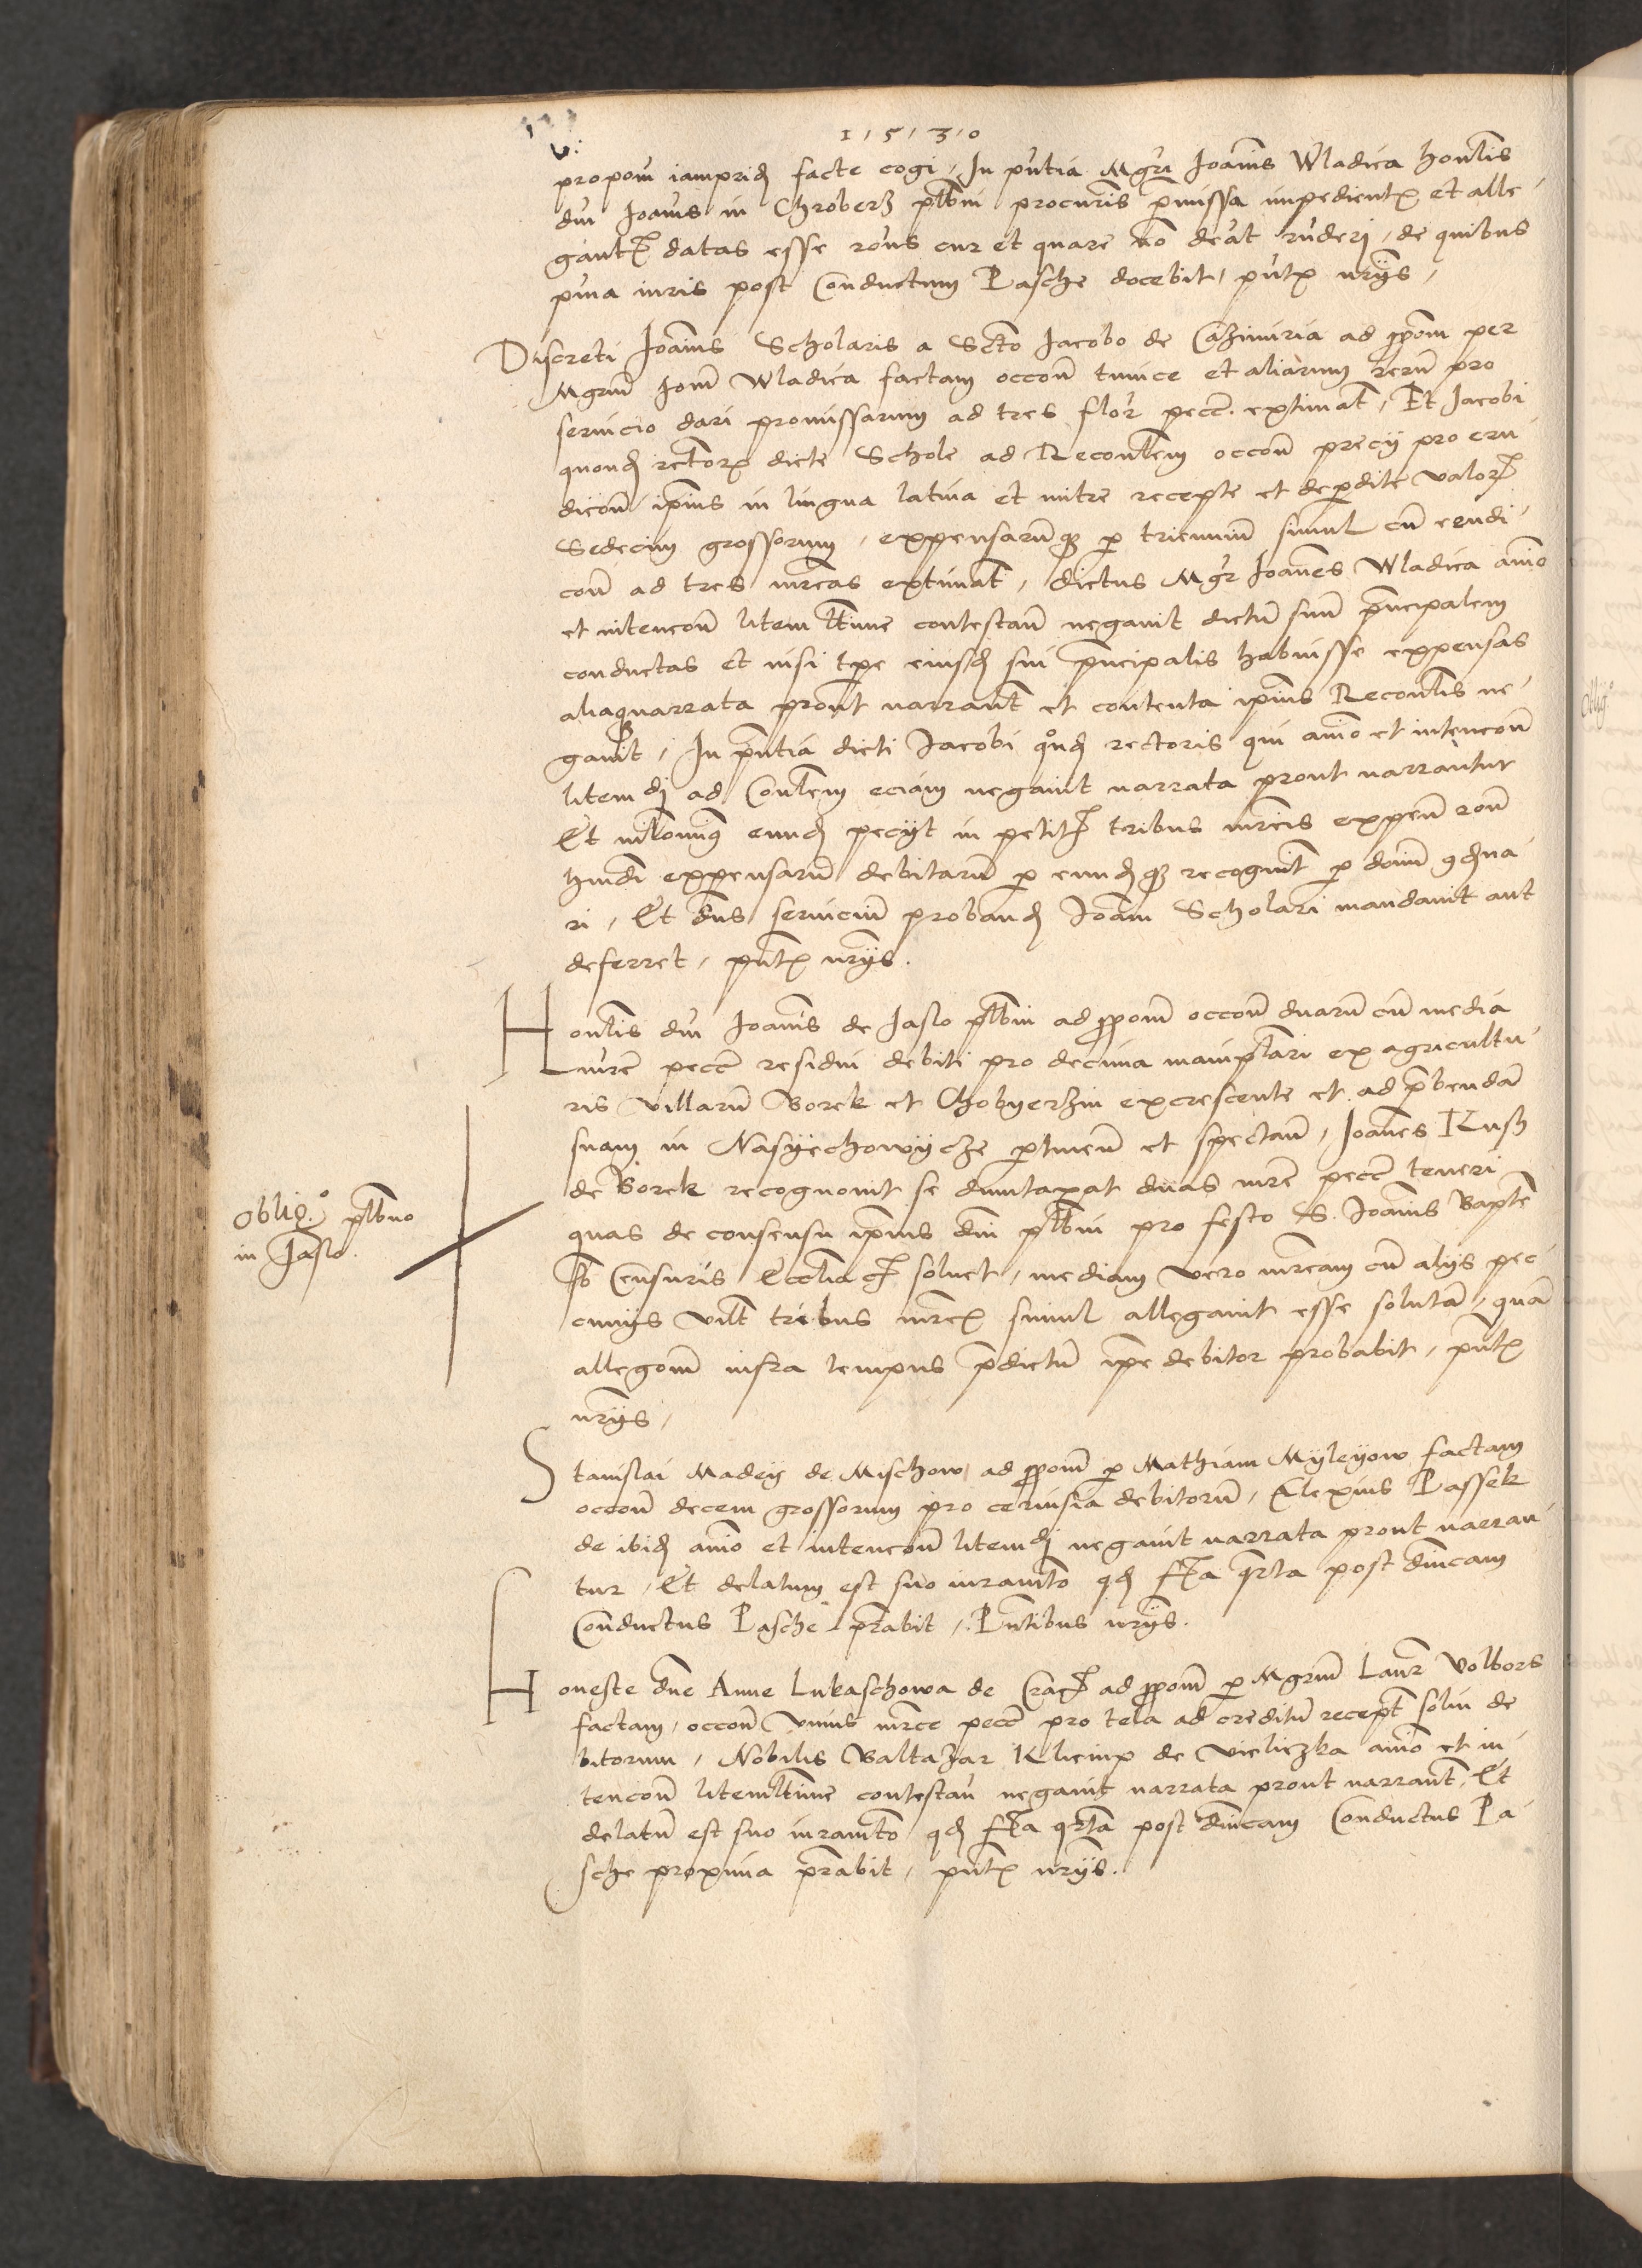 1530
propom iampridem facte cogi, In pntia Mgri Joannis Wladica honlis
dni Joannis in Chroberz plbni procuris pmissa impedientis et alle
gantis datas esse rons cur et quare non deat de quibus
pma iuris post Conductum Pasche docebit, pntx nrijs,
Discreti Joannis Scholaris a Scto Jacobo de Cazimiria ad ppom per
Mgrm Joannem Wladica factam occom tunice et aliarum rerum pro
servicio dari promissarum ad tres flor pecc. extimat, Et Jacobi
quond rectoris dicte Schole ad Reconlem occom precij pro eru
dicom ipius in lingua latina et mitre recepte et deperdite valoris
Sedecim grossorum, expensarumque per triennium simul cum erudi
com ad tres mrcas extimat, dictus Mgr Joannes Wladica animo
et intencom litem lttime contestan negavit dictum suum principalem
conductas et nisi tpe eiusd sui principalis habuisse expensas
aliaque narrata prout narrant et contenta ipius Reconlis ne
gavit, In pntia dicti Jacobi quond rectoris qui animo et intencom
litem ad Conlem eciam negavit narrata prout narrantur
Et nilominus eund pecijt in petitis tribus mrcis expen rom
hmdi expensarum debitarum per eundem recognit per dnum condna
ri, Et dns servicium proband Joanni Scholari mandavit aut
deferret, pntx nrijs.
Honlis dni Joannis de Jaslo plbni ad ppom occom duarum cum media
mrc pecc residui debiti pro decima manipulari ex agricultu
ris villarum Borek et Chobyerzin excrescente et ad prebendam
suam in Nasyechowycze ptinen et spectan, Joannes Kusz
de Borek recognovit se dumtaxat duas mrc pecc teneri
quas de consensu ipius dni plbni pro festo S. Joannis Bapte
sub Censuris Ecclasticis solvet, mediam vero mrcam cum alijs pec
cunijs videlt tribus mrcis simul allegavit esse solutam, quam
allegom infra tempus pdictum ipe debitor probabit, pntx
nrijs,
Oblig.o plbno
in Jaslo.
Stanislai Madey de Mischow ad ppom per Mathiam Myleyow factam
occom decem grossorum pro cervisia debitorum, Alexius Passek
de ibid animo et intencom litem negavit narrata prout narran
tur, Et delatum est suo iuramto qd fria qrta post dnicam
Conductus Pasche prabit, Pntibus nrijs.
Honeste dne Anne Lukaschowa de Crac ad ppom per Mgrm Laur Volbors
factam, occom unius mrce pecc pro tela ad creditum recept solvi de
bitorum, Nobilis Baltazar Kliemp de Vieliczka animo et in
tencom litem lttime contestan negavit narrata prout narrant, Et
delatum est suo iuramto qd fria qrta post dnicam Conductus Pa
sche proxima prabit, pntx nrijs.